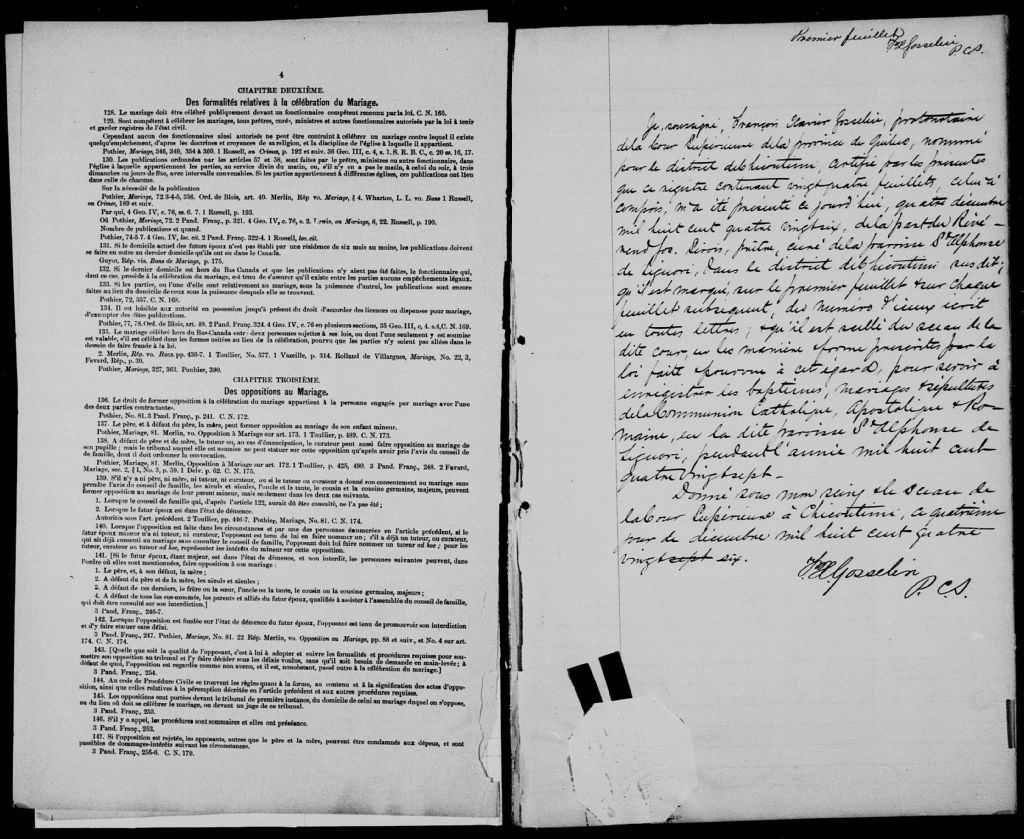 4
CHAPITRE DEUXIÈME.
Des formalités relatives à la célébration du Mariage.
128. Le mariage doit être célébré publiquement devant un fonctionnaire compétent reconnu par la loi. C. N. 165.
129. Sont compétent à célébrer les mariages, tous prêtres, curés, ministres et autres fonctionnaires autorisés par la loi à tenir
et garder registres de l'état civil.
Cependant aucun des fonctionnaires ainsi autorisés ne peut être contraint à célébrer un mariage contre lequel il existe
quelqu'empêchement, d'après les doctrines et croyances de sa religion, et la discipline de l'église à laquelle il appartient.
Pothier, Mariage, 346, 349, 354 à 360. 1 Russell, on Crimes, p. 192 et suiv. 36 Geo. III, c. 4, s. 1, S. R. B. C., c. 20 s. 16, 17.
130. Les publications ordonnées par les articles 57 et 58, sont faites par le prêtre, ministre ou autre fonctionnaire, dans
l'église à laquelle appartiennent les parties, au service divin du matin, ou, s'il n'y en a pas le matin, à celui du soir, à trois
dimanches ou jours de fête, avec intervalle convenables. Si les parties appartiennent à différentes églises, ces publications ont lieu
dans celle de chacune.
Sur la nécessité de la publication
Pothier, Mariage, 72 3-4-5, 356. Ord. de Blois, art. 40. Merlin, Rép vo. Mariage, § 4. Wharton, L. L. vo. Bans 1 Russell,
on Crimes, 189 et suiv.
Par qui, 4 Geo. IV, c. 76, ss. 6. 7. 1 Russell, p. 193.
Où Pothier, Mariage, 72. 2 Pand. Franç., p. 321. 4 Geo. IV, c. 76, s. 2. Irwin, on Mariage, 8, 22. Russell, p. 190.
Nombre de publications et quand.
Pothier, 74-5 7. 4 Geo. IV, loc. cit. 2 Pand. Franç. 322-4. 1 Russell, loc. cit.
131. Si le domicile actuel des futurs époux n'est pas établi par une résidence de six mois au moins, les publications doivent
se faire en outre au dernier domicile qu'ils ont eu dans le Canada.
Guyot, Rép. vis. Bans de Mariage, p. 175.
132. Si le dernier domicile est hors du Bas Canada et que les publications n'y aient pas été faites, le fonctionnaire qui,
dans ce cas, procède à la célébration du mariage, est tenu de s'assurer qu'il existe entre les parties aucuns empêchements légaux.
133. Si les parties, ou l'une d'elle sont relativement au mariage, sous la puissance d'autrui, les publications sont encore
faites au lieu du domicile de ceux sous la puissance desquels elle se trouvent.
Pothier, 72, 357. C. N. 168.
134. Il est loisible aux autorité en possession jusqu'à présent du droit d'accorder des licences ou dispenses pour mariage,
d'exempter des dites publications.
Pothier, 77, 78. Ord. de Blois, art. 40. 2 Pand. Franç. 324. 4 Geo. IV, c. 76 en plusieurs sections, 35 Geo. III, c. 4. s.4, C. N. 169.
135. Le mariage célébré hors du Bas-Canada entre deux personnes sujettes à ses lois, ou dont l'une seulement y est soumise
est valable, s'il est célébré dans les formes usitées au lieu de la célébration, pourvu que les parties n'y soient pas allées dans le
dessein de faire fraude à la loi.
2. Merlin, Rép. vo. Bans. pp. 436-7. 1 Toullier, No. 577. 1 Vazeille, p. 314. Rolland de Villargues, Mariage, No. 22, 3,
Favard, Rép., p. 30.
Pothier, Mariage, 327, 363. Pouhier, 390.
CHAPITRE TROISIÈME.
Des oppositions au Mariage.
136. Le droit de former opposition à la célébration du mariage appartient à la personne engagée par mariage avec l'une
des deux parties contractantes.
Pothier, No. 81. 3 Pand. Franç., p. 241. C. N. 172.
137. Le père, et à défaut du père, la mère, peut former opposition au mariage de son enfant mineur.
Pothier, Mariage, 81. Merlin, vo. Opposition à Mariage sur art. 173. 1 Toullier, p. 489. C. N. 173.
138. A défaut de père et de mère, le tuteur ou, au cas d'émancipation, le curateur peut aussi faire opposition au mariage de
son pupille ; mais le tribunal auquel elle est soumise ne peut statuer sur cette opposition qu'après avoir pris l'avis du conseil de
famille, dont il doit ordonner la convocation.
Pothier, Mariage, 81. Merlin, Opposition à Mariage sur art. 172. 1 Toullier, p. 425, 490. 3 Pand. Franç., 248. 2 Favard,
Mariage, sec. 2, § 1, No. 3, p. 59. 1 Delv. p. 62. C. N. 175.
139. S'il n'y a ni père, ni mère, ni tuteur, ni curateur, ou si le tuteur ou curateur a donné son consentement au mariage sans
prendre l'avis du conseil de famille, les aïeuls et aïeules, l'oncle et la tante, le cousin et la cousine germains, majeurs, peuvent
former opposition au mariage de leur parent mineur, mais seulement dans les deux cas suivants.
1. Lorsque le conseil de famille qui, d'après l'article 122, aurait dû être consulté, ne l'a pas été ;
2. Lorsque le futur époux est dans l'état de démence.
Autorités sous l'art. précédent. 2 Toullier, pp. 446-7. Pothier, Mariage, No. 81. C. N. 174.
140. Lorsque l'opposition est faite dans les circonstances et par une des personnes énumérées en l'article précédent, si le
futur époux mineur n'a ni tuteur, ni curateur, l'opposant est tenu de lui en faire nommer un ; s'il a déjà un tuteur, ou curateur,
qui ait déjà consenti au mariage sans consulter le conseil de famille, l'opposant doit lui faire nommer un tuteur ad hoc ; pour les
tuteur, curateur ou tuteur ad hoc, représenter les intérêts du mineur sur cette opposition.
141. [Si le futur époux, étant majeur, est dans l'état de démence, et non interdit, les personnes suivantes peuvent, dans
l'ordre où elles sont mentionnées, faire opposition à son mariage :
1. Le père, et, à son défaut, la mère ;
2. A défaut du père et de la mère, les aïeuls et aïeules ;
3. A défaut de ces derniers, le frère ou la sœur, l'oncle ou la tante, le cousin ou la cousine germains, majeurs ;
4. A défaut de tous les sus-nommés, les parents et alliés du futur époux, qualifiés à assister à l'assemblée du conseil de famille,
qui doit être consulté sur son interdiction.]
3 Pand. Franç., 246-7.
142. Lorsque l'opposition est fondée sur l'état de démence du futur époux, l'opposant est tenu de promouvoir son interdiction
et d'y faire statuer sans délai.
3 Pand. Franç., 247. Pothier, Mariage, No. 81. 22 Rép. Merlin, vo. Opposition au Mariage, pp. 88 et suiv., et No. 4 sur art.
174. C. N. 174.
143. [Quelle que soit la qualité de l'opposant, c'est à lui à adopter et suivre les formalités et procédures requises pour sou-
mettre son opposition au tribunal et l'y faire décider sous les délais voulus, sans qu'il soit besoin de demande en main-levée ; à
défaut de quoi, l'opposition est regardée comme non avenu, et il est, nonobstant, passé outre à la célébration du mariage.]
3 Pand. Franç., 254.
144. Au code de Procédure Civile se trouvent les règles quant à la forme, au contenu et à la signification des actes d'oppo-
sition, ainsi que celles relatives à la péremption décrétée en l'article précédent et aux autres procédures requises.
145. Les oppositions sont portées devant le tribunal de première instance, du domicile de celui au mariage duquel on s'oppose,
ou du lieu où doit se célébrer le mariage, ou devant un juge de ce tribunal.
3 Pand. Franç., 253.
146. S'il y a appel, les procédures sont sommaires et elles ont préséance.
3 Pand. Franç., 253.
147. Si l'opposition est rejetée, les opposants, autres que le père et la mère, peuvent être condamnés aux dépens, et sont
passibles de dommages-intérêts suivant les circonstances.
3 Pand. Franç., 255-6. C. N. 179.
Premier feuillet
FX Gosselin
P.C.S.
Je, soussigné, François Xavier Gosselin, protonotaire
de la Cour Supérieure de la province de Québec, nommé
pour le district de Chicoutimi, certifie par les présentes
que ce registre contenant vingt quatre feuillets, celui-ci
compris, m'a été présenté ce jourd'hui, quatre décembre
mil huit cent quatre vingt six, de la part du Révé-
rend Jos. Sirois, prêtre, curé de la paroisse St Alphonse
de Liguori, dans le district de Chicoutimi susdit ;
qu'il est marqué, sur le premier feuillet & sur chaque
feuillet subséquent, du numéro d'iceux écrit
en toutes lettres ; & qu'il est scellé du sceau de la
dite cour, en la manière & forme prescrites par la
loi faite & pourvue à cet égard, pour servir à
enregistrer les baptêmes, mariages & sépultures
de la Communion Catholique, Apostolique & Ro-
maine, en la dite paroisse St Alphonse de
Liguori, pendant l'année mil huit cent
quatre vingt sept.-
Donné sous mon seing & le sceau de
la Cour Supérieure à Chicoutimi, ce quatrième
jour de décembre mil huit cent quatre
vingt sept six.
FX Gosselin
P.C.S.